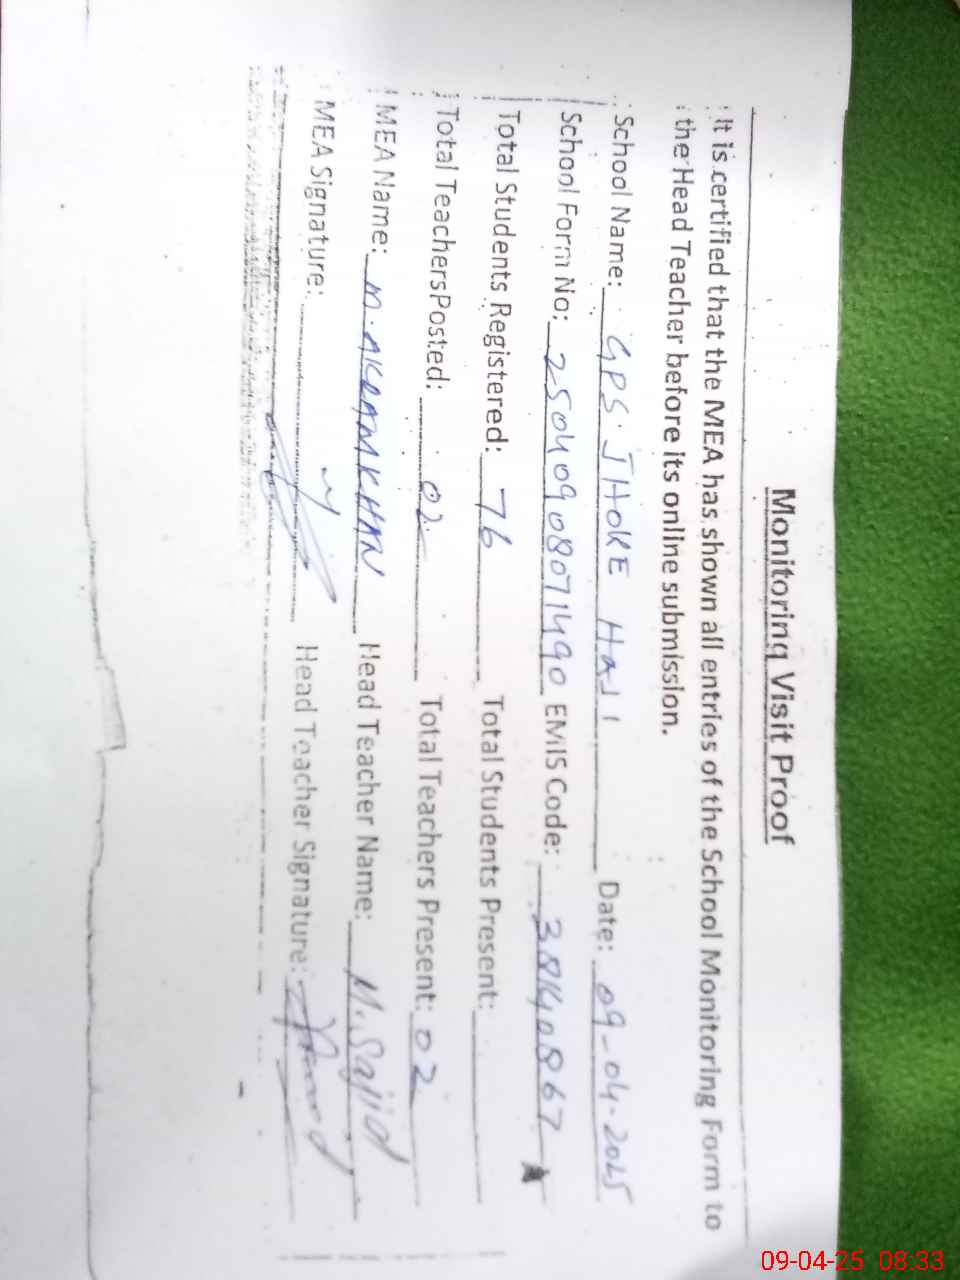 Monitoring Visit Proof
It is certified that the MEA has shown all entries of the School Monitoring Form to
the Head Teacher before its online submission.
School Name: GPS JHOKE HaJI Date: 09-04-2025
School Form No: 25040908071490 EMIS Code: 38140867
Total Students Registered: 76 Total Students Present:
Total TeachersPosted: 02 Total Teachers Present: 02
MEA Name: M. AKRAM KHAN Head Teacher Name: M. Sajid
MEA Signature: Head Teacher Signature:
09-04-25 08:33